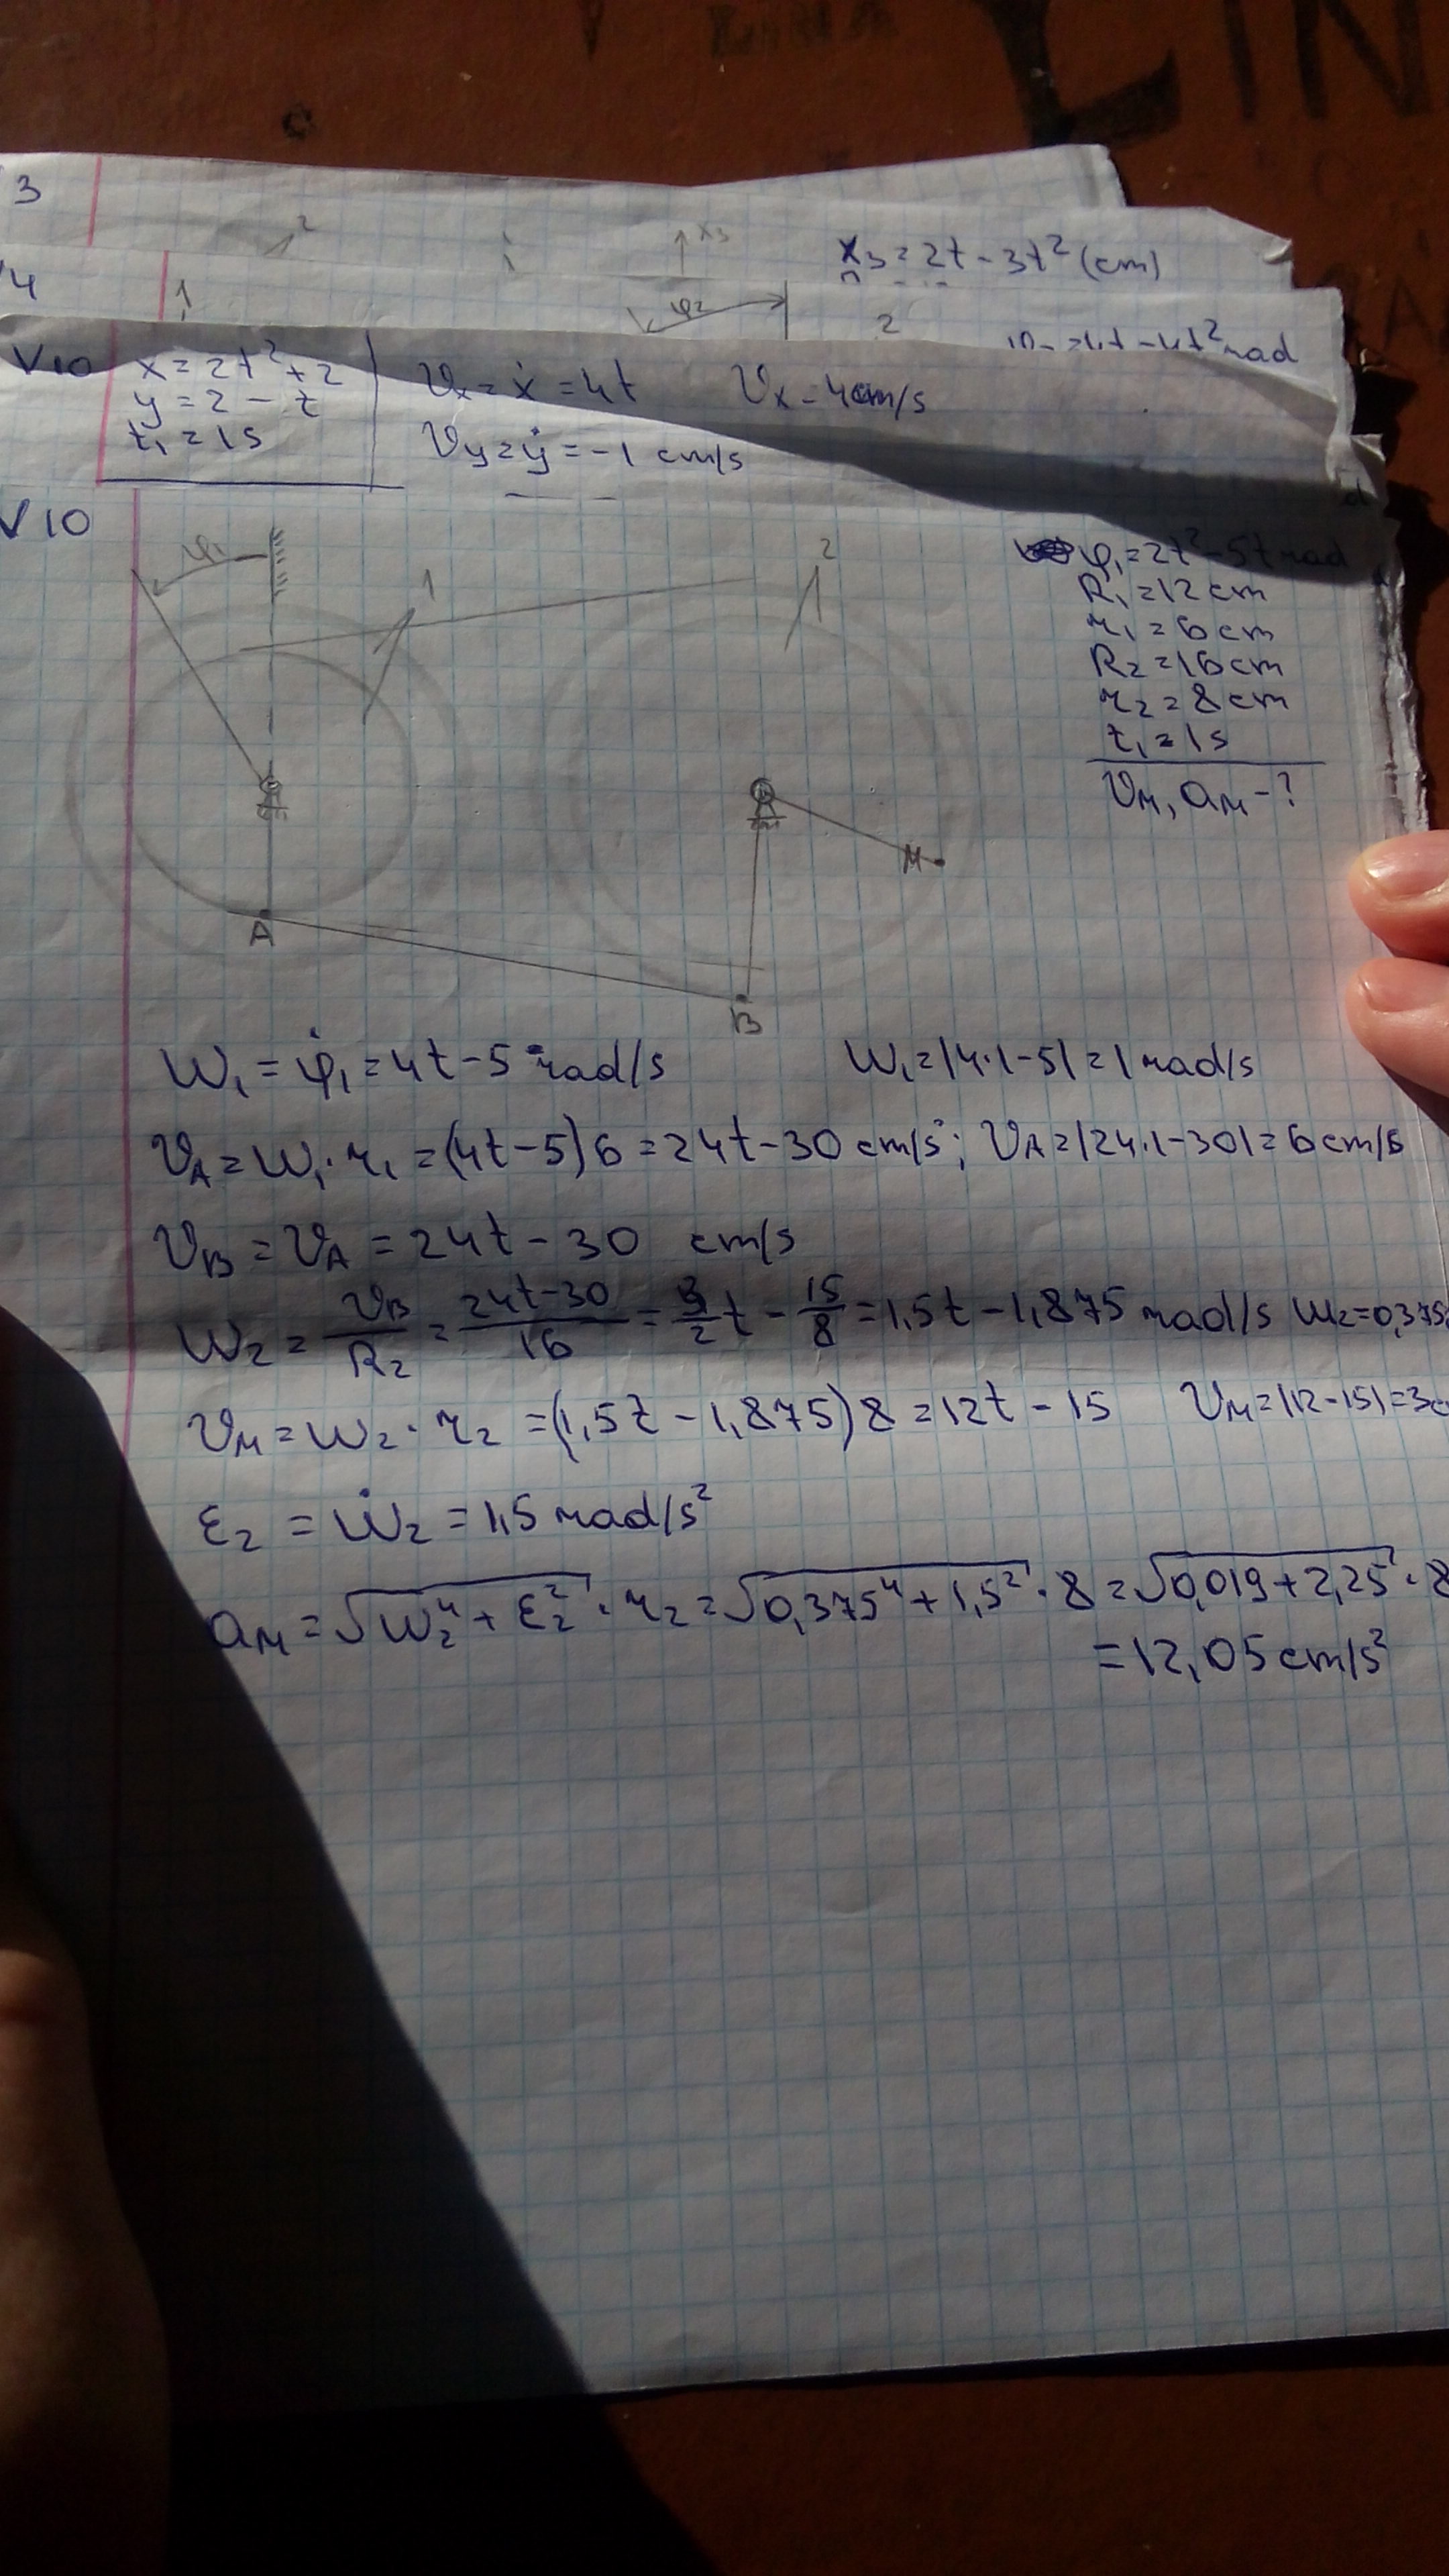 3
2
x₃
x₃ = 2t - 3t² (cm)
4
1
φ₂
2
V10
x = 2t² + 2
y = 2 - t
t₁ = 1s
Vx = ẋ = 4t Vx - 4cm/s
Vy = ẏ = -1 cm/s
V10
φ₁
1
2
A
B
M
φ₁ = 2t² - 5t rad
R₁ = 12 cm
r₁ = 6 cm
R₂ = 16 cm
r₂ = 8 cm
t₁ = 1s
Vм, aм - ?
W₁ = φ̇₁ = 4t - 5 rad/s W₁ = |4·1-5| = 1 rad/s
VA = W₁·r₁ = (4t-5)6 = 24t-30 cm/s; VA = |24·1-30| = 6 cm/s
VB = VA = 24t - 30 cm/s
W₂ = VB/R₂ = 24t-30/16 = 3/2 t - 15/8 = 1,5t - 1,875 rad/s W₂ = 0,375
Vм = W₂·r₂ = (1,5t - 1,875)8 = 12t - 15 Vм = |12-15| = 3c
ε₂ = Ẇ₂ = 1,5 rad/s²
aм = √W₂⁴ + ε₂² · r₂ = √0,375⁴ + 1,5² · 8 = √0,019 + 2,25 · 8
= 12,05 cm/s²